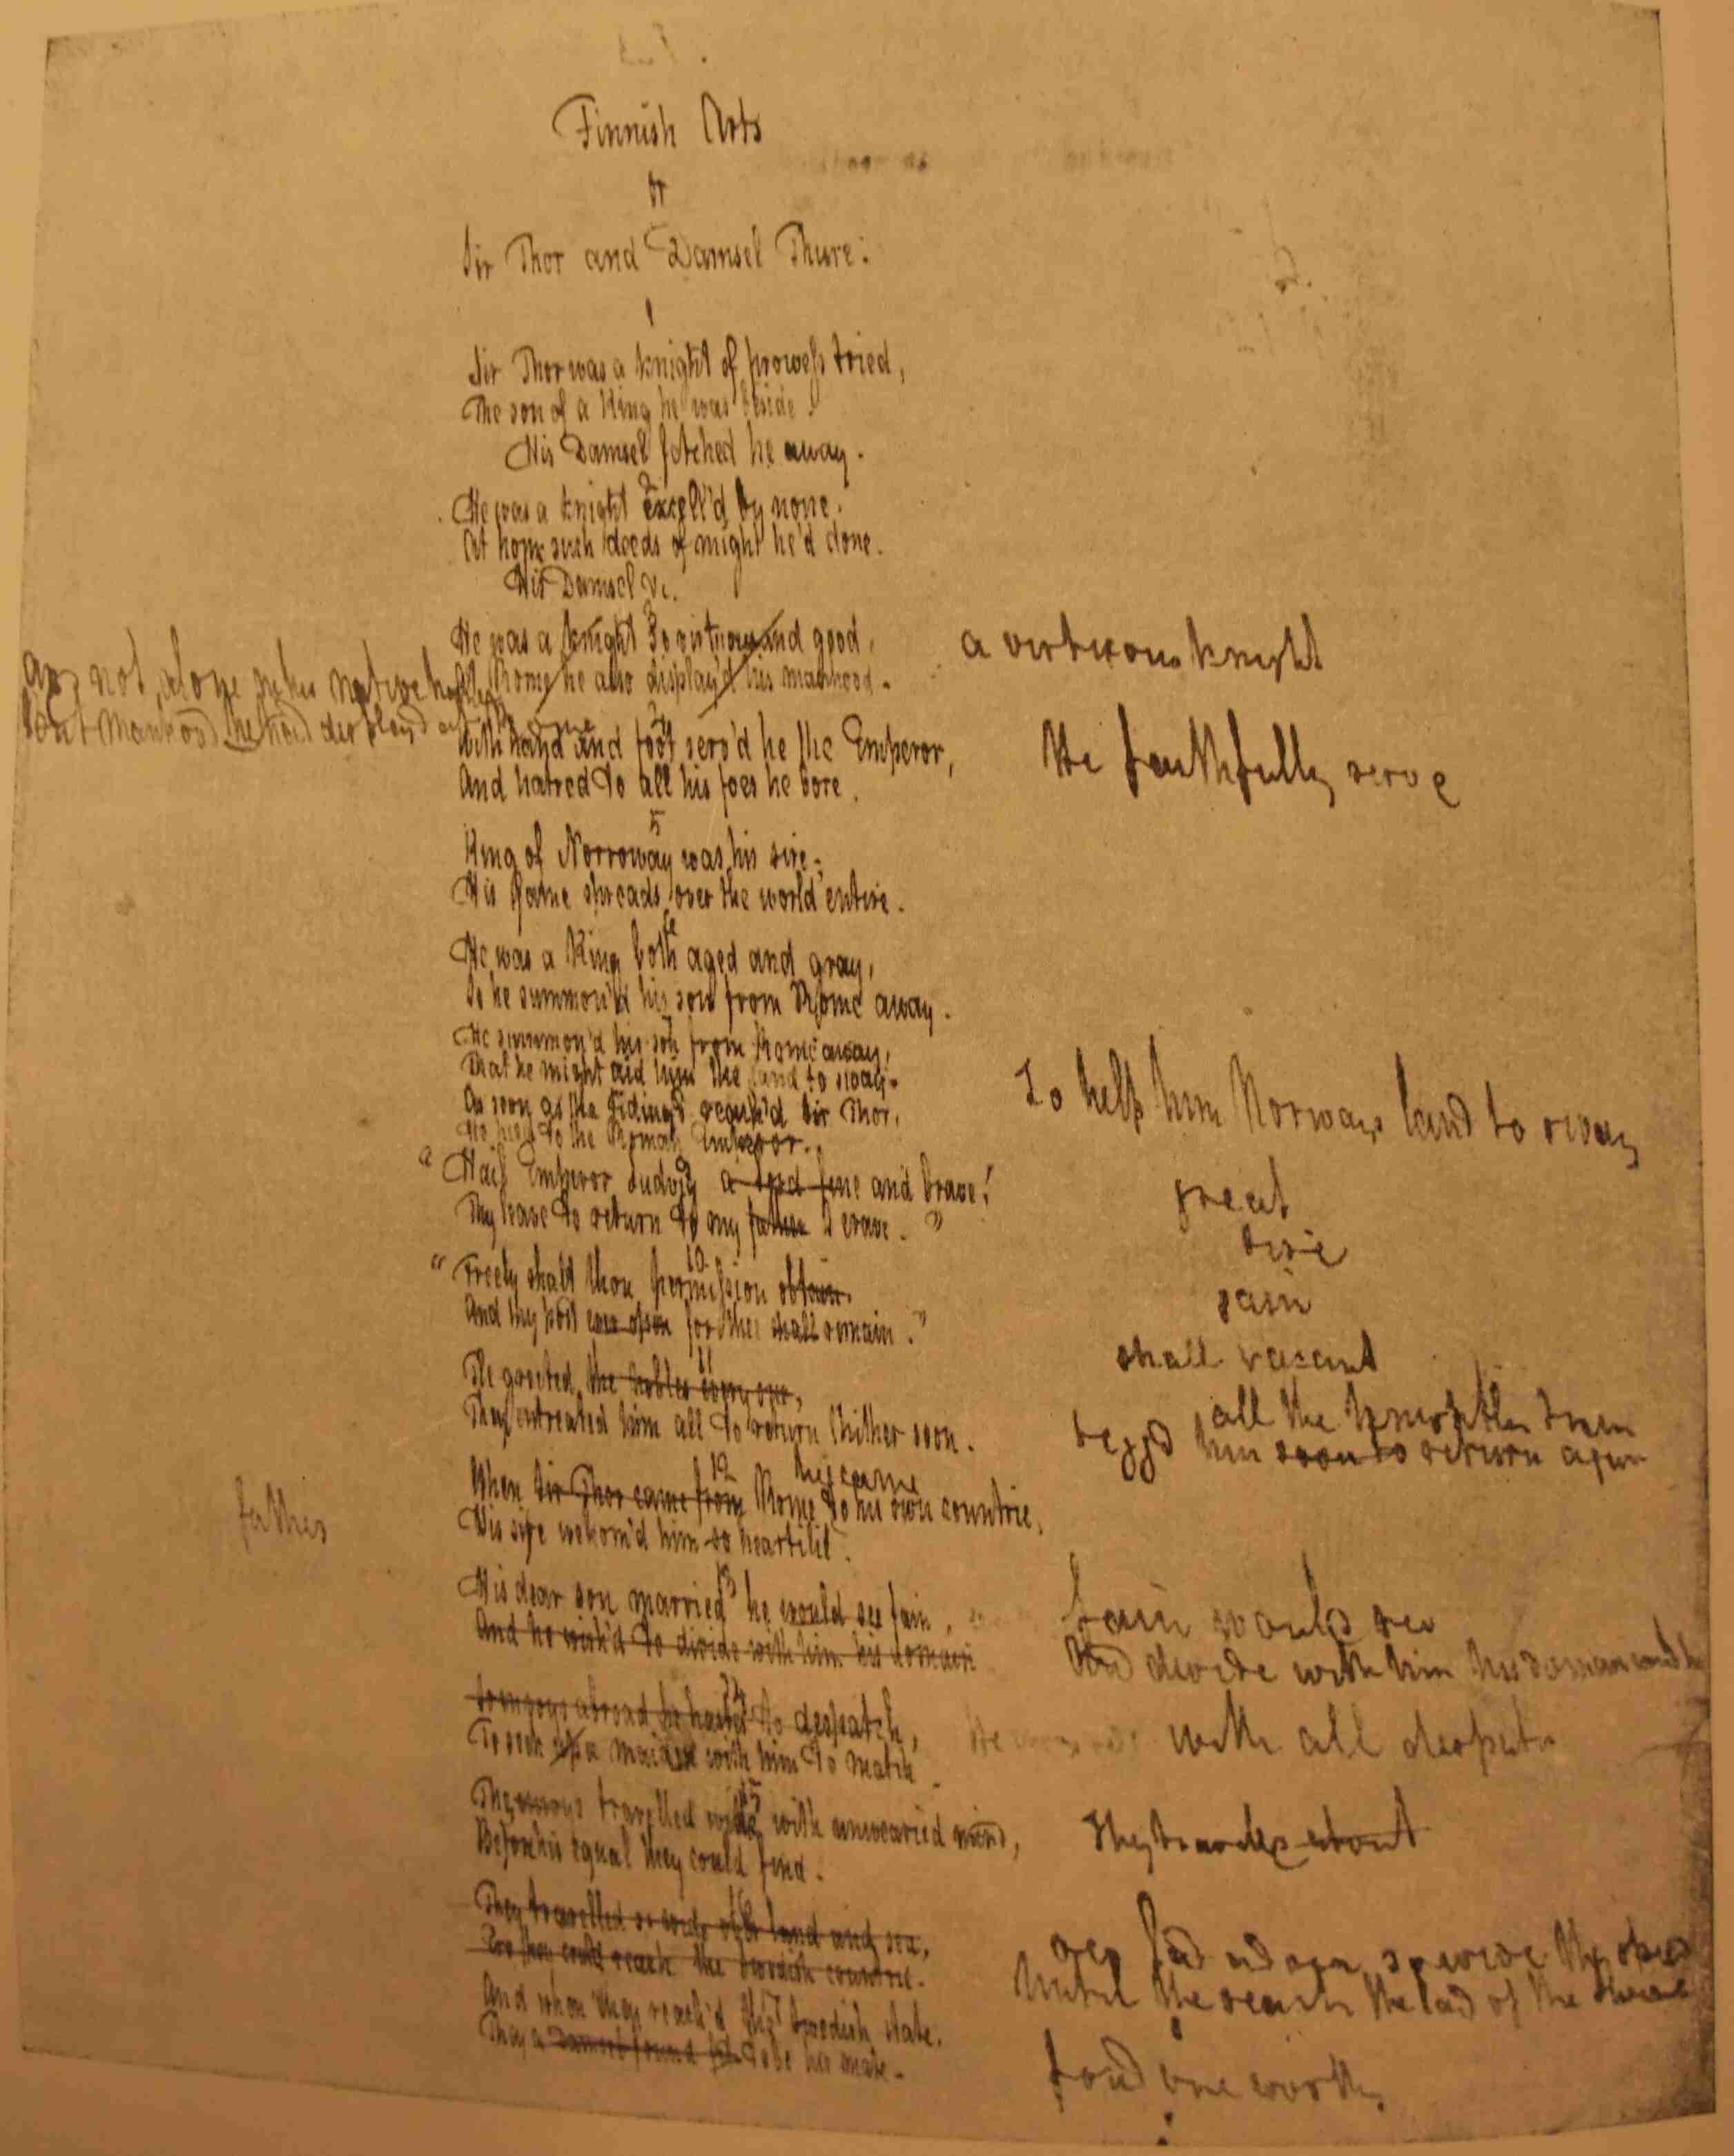 Finnish Arts
or
Sir Thor and Damsel Thure.
1
Sir Thor was a knight of prowess tried,
The son of a King he was beside.
His Damsel fetched he away.
2
He was a knight excell'd by none.
At home such deeds of might he'd done.
His Damsel &c.
3
He was a knight so virtuous and good, a virtuous knight
At Rome he also display'd his manhood.
not alone in his native
manhood he had display'd
4
With hand and foot serv'd he the Emperor, He faithfully serve
And hatred to all his foes he bore.
5
King of Norroway was his sire;
His fame spreads over the world entire.
6
He was a King both aged and gray,
So he summon'd his son from Rome away.
7
He summon'd his son from Rome away,
That he might aid him the land to sway. To help him Norways land to sway
As soon as the tidings reach'd Sir Thor,
to the Roman Emperor.
9
"Hail Emperor Ludvig a lord fine and brave! great
Thy leave to return to my father I crave." sire
10
"Freely shalt thou permission obtain. gain
And thy post ever open for thee shall remain." shall vacant
11
He greeted the nobles every one, all the knightly train
They entreated him all to return thither soon. begg'd him soon to return again
12
he came
When Sir Thor came from Rome to his own countrie,
father
His sire welcom'd him so heartilie.
13
His dear son married he would see fain, fain would see
And he wish'd to divide with him his domain And divide with him his domain
14
Envoys abroad he hasted to despatch, with all despatch
To seek up a maiden with him to match.
15
The envoys travelled wide with unwearied mind, They travelled about
Before his equal they could find.
16
They travelled so wide o'er land and sea, O'er land and sea so wide they
Ere they could reach the Swedish countrie. Until the reach the land of the
17
And when they reach'd the Swedish state.
They a Damsel found fit to be his mate. found one worthy